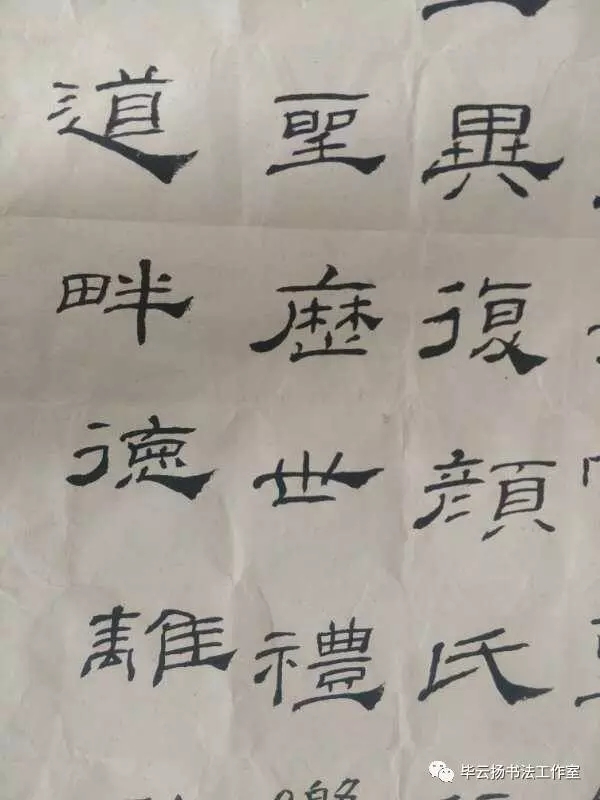 異復顏氏
聖歷世禮
道畔德離
毕云扬书法工作室